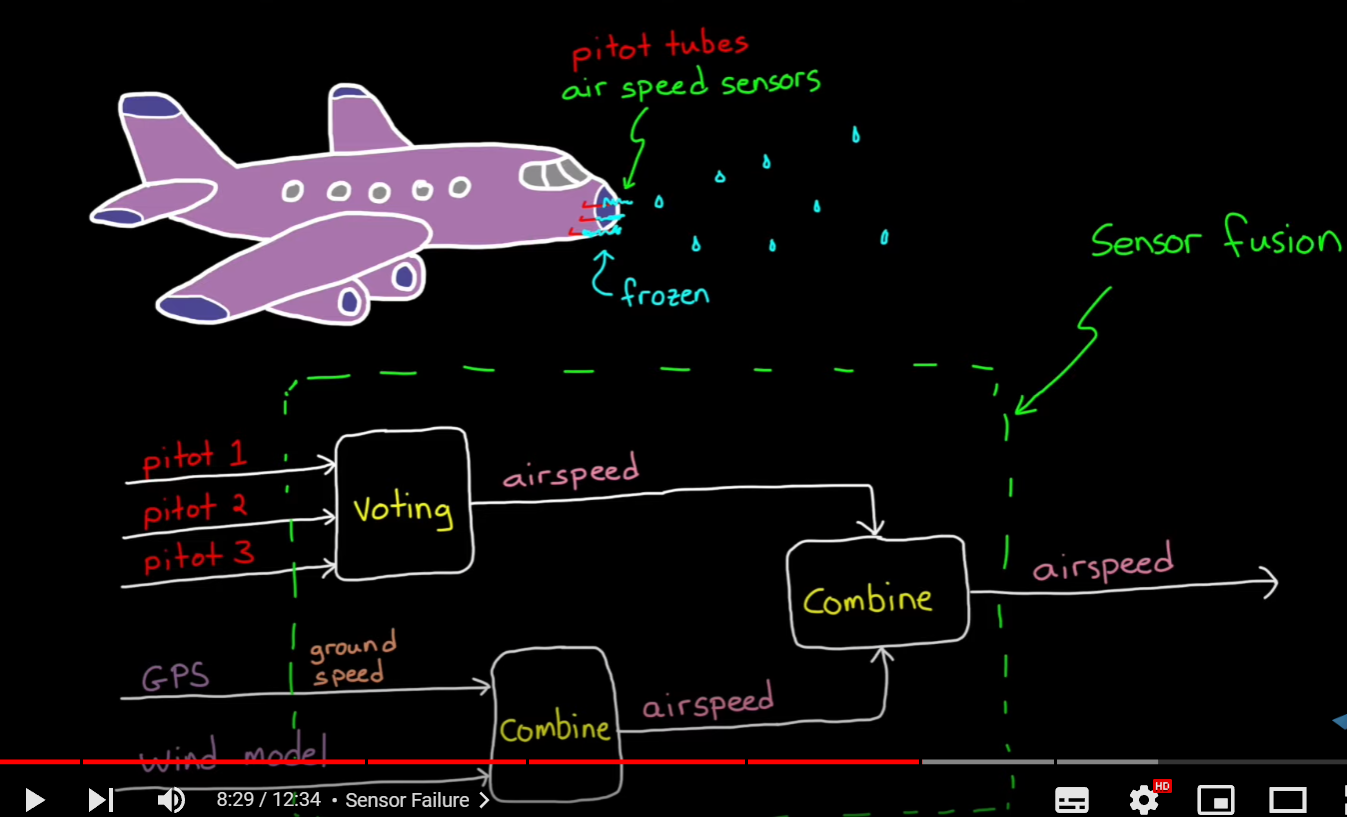 pitot tubes
air speed sensors
frozen
Sensor fusion
pitot 1
pitot 2
pitot 3
Voting
airspeed
Combine
airspeed
GPS
ground
speed
Wind model
Combine
airspeed
8:29 / 12:34 • Sensor Failure
HD